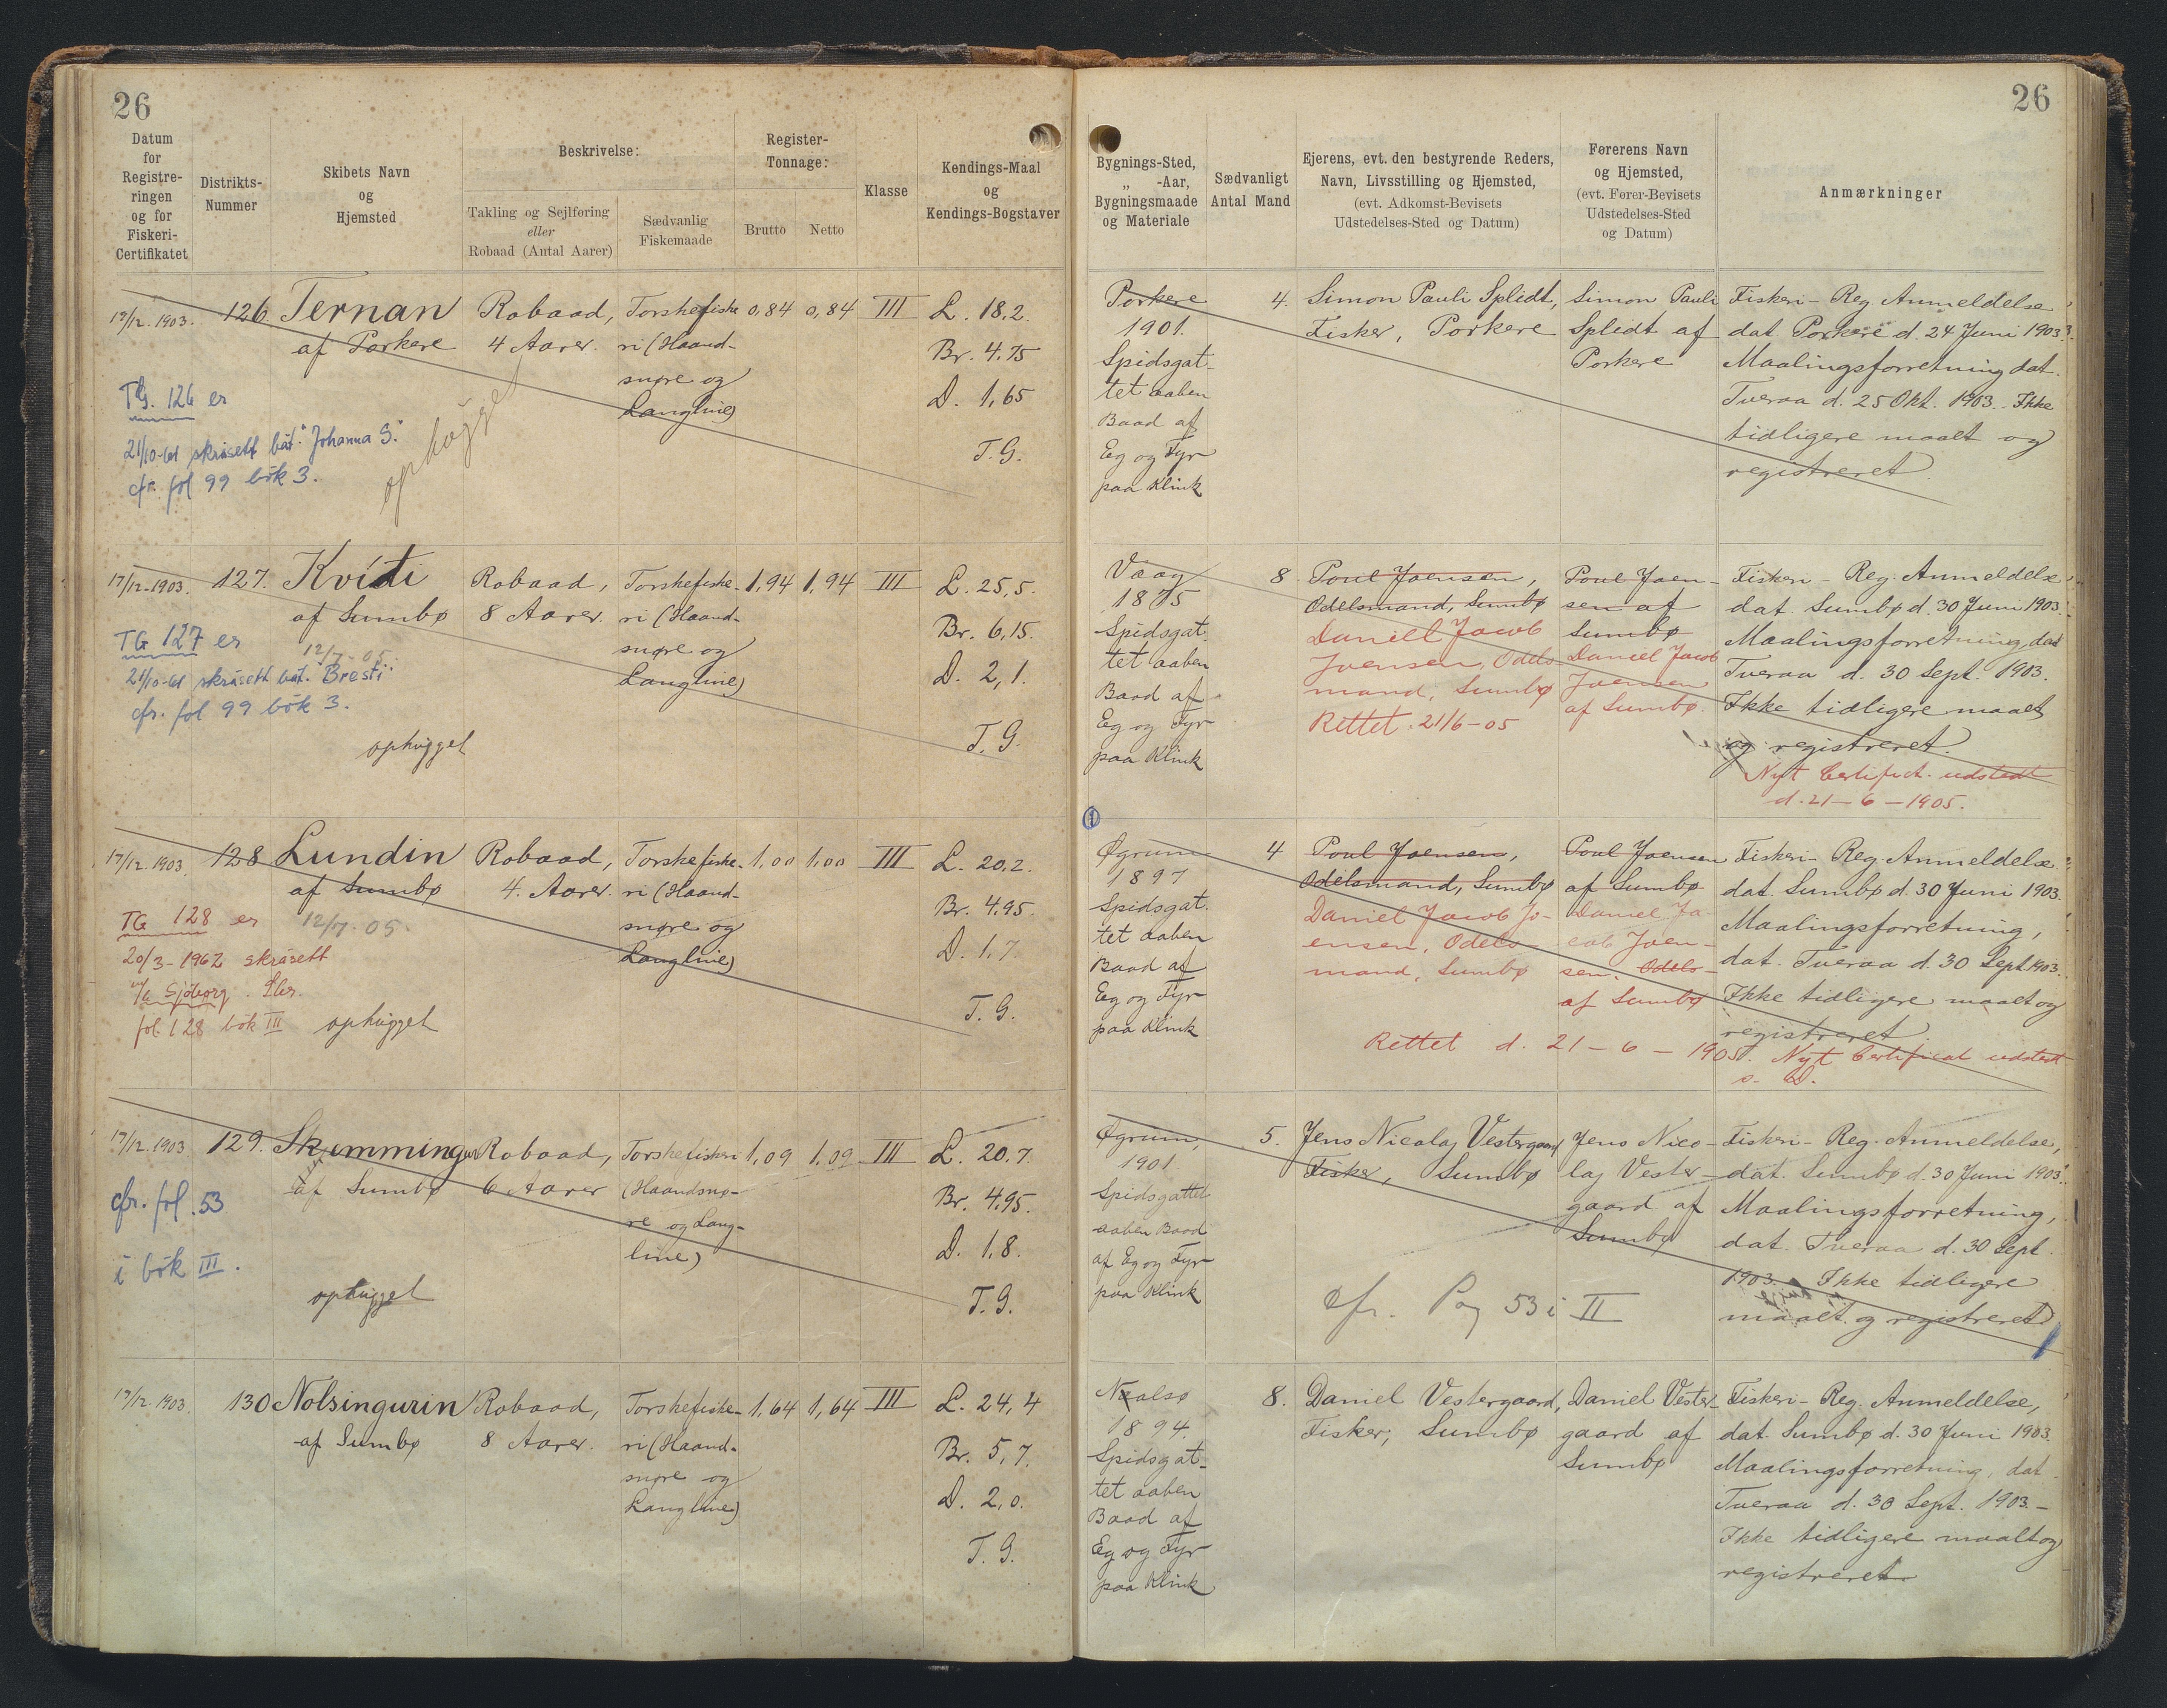 26
Datum
for
Registre-
ringen
og for
Fiskeri-
Certifikatet
Distrikts-
Nummer
Skibets Navn
og
Hjemsted
Beskrivelse:
Takling og Sejlføring
eller
Robaad (Antal Aarer)
Sædvanlig
Fiskemaade
Register-
Tonnage:
Brutto
Netto
Klasse
Kendings-Maal
og
Kendings-Bogstaver
26
Bygnings-Sted,
„ -Aar,
Bygningsmaade
og Materiale
Sædvanligt
Antal Mand
Ejerens, evt. den bestyrende Reders,
Navn, Livsstilling og Hjemsted,
(evt. Adkomst-Bevisets
Udstedelses-Sted og Datum)
Førerens Navn
og Hjemsted,
(evt. Fører-Bevisets
Udstedelses-Sted
og Datum)
Anmærkninger
17/12. 1903.
126.
Ternan
af Porkere
Robaad,
4 Aarer.
Torskefiske
ri (Haand-
snøre og
Langline)
0,84
0,84
III
L. 18,2.
Br. 4.75
D. 1,65
T.G.
TG. 126 er
21/10-61 skrásett bát. "Johanna S."
cfr. fol 99 bók 3.
ophugget
Porkere
1901.
Spidsgat-
tet aaben
Baad af
Eg og Fyr
paa Klink
4.
Simon Pauli Splidt,
Fisker, Porkere
Simon Pauli
Splidt af
Porkere
Fiskeri-Reg. Anmeldelse
dat Porkere d. 24 Juni 1903.
Maalingsforretning dat.
Tveraa d. 25 Okt. 1903. Ikke
tidligere maalt og
registreret.
17/12-1903.
127.
Kvíti
af Sumbø
12/7-05.
Robaad,
8 Aarer.
Torskefiske-
ri (Haand-
snøre og
Langline)
1,94
1,94
III
L. 25,5.
Br. 6,15.
D. 2,1.
T.G.
TG 127 er
21/10-61 skrásett bát. "Bresti"
cfr. fol 99 bók 3.
ophugget
Vaag
1875
Spidsgat-
tet aaben
Baad af
Eg og Fyr
paa Klink
8.
Poul Joensen,
Odelsmand, Sumbø
Daniell Jacob
Joensen, Odels-
mand, Sumbø
Rettet. 21/6-05
Poul Joen-
sen af
Sumbø
Daniel Jacob
Joensen
af Sumbø.
Fiskeri-Reg. Anmeldelse
dat. Sumbø d. 30 Juni 1903.
Maalingsforretning dat
Tveraa d. 30 Sept. 1903.
Ikke tidligere maalt
og registreret.
Nyt Certifict. udstedt
d. 21-6-1905.
17/12. 1903.
128
Lundin
af Sumbø
12/7-05.
Robaad,
4. Aarer.
Torskefiske-
ri (Haand-
snøre og
Langline)
1,00
1,00
III
L. 20,2.
Br. 4,95.
D. 1,7.
T.G.
TG 128 er
20/3-1962 skrásett
Sjóborg.
fol. 128 bók III
ophugget
1
Øgrum
1897
Spidsgat-
tet aaben
Baad af
Eg og Fyr
paa Klink
4
Poul Joensen,
Odelsmand, Sumbø
Daniel Jacob Jo-
ensen, Odels-
mand, Sumbø
Poul Joensen
af Sumbø
Daniel Ja-
cob Joen-
sen. Odels-
af Sumbø
Fiskeri-Reg. Anmeldelse
dat. Sumbø d. 30 Juni 1903.
Maalingsforretning,
dat. Tveraa d. 30 Sept. 1903.
Ikke tidligere maalt og
registreret.
Rettet d. 21-6-1905. Nyt Certificat udstedt
s. D.
17/12. 1903
129.
Skumminger
af Sumbø
Robaad,
6 Aarer
Torskefiskeri
(Haandsnø-
re og Lang-
line)
1,09
1,09
III
L. 20,7.
Br. 4,95.
D. 1,8.
T.G.
cfr. fol. 53
i bók III.
ophugget
Øgrum,
1901.
Spidsgattet
aaben Baad
af Eg og Fyr
paa Klink
5.
Jens Nicolaj Vestergaard
Fisker, Sumbø
Jens Nico-
laj Vester-
gaard af
Sumbø
cfr. Pag 53 i II
Fiskeri-Reg. Anmeldelse,
dat. Sumbø d. 30 Juni 1903.
Maalingsforretning,
dat. Tveraa d. 30 Sept.
1903. Ikke tidligere
maalt og registreret
17/12. 1903.
130
Nolsingurin
af Sumbø
Robaad,
8 Aarer.
Torskefiske-
ri (Haand-
snøre og
Langline)
1,64
1,64
III
L. 24,4
Br. 5,7.
D. 2,0.
T.G.
Naalsø
1894.
Spidsgat-
tet aaben
Baad af
Eg og Fyr
paa Klink
8.
Daniel Vestergaard,
Fisker, Sumbø
Daniel Vester-
gaard af
Sumbø
Fiskeri-Reg. Anmeldelse,
dat. Sumbø d. 30 Juni 1903.
Maalingsforretning, dat.
Tveraa d. 30 Sept. 1903.-
Ikke tidligere maalt og
registreret